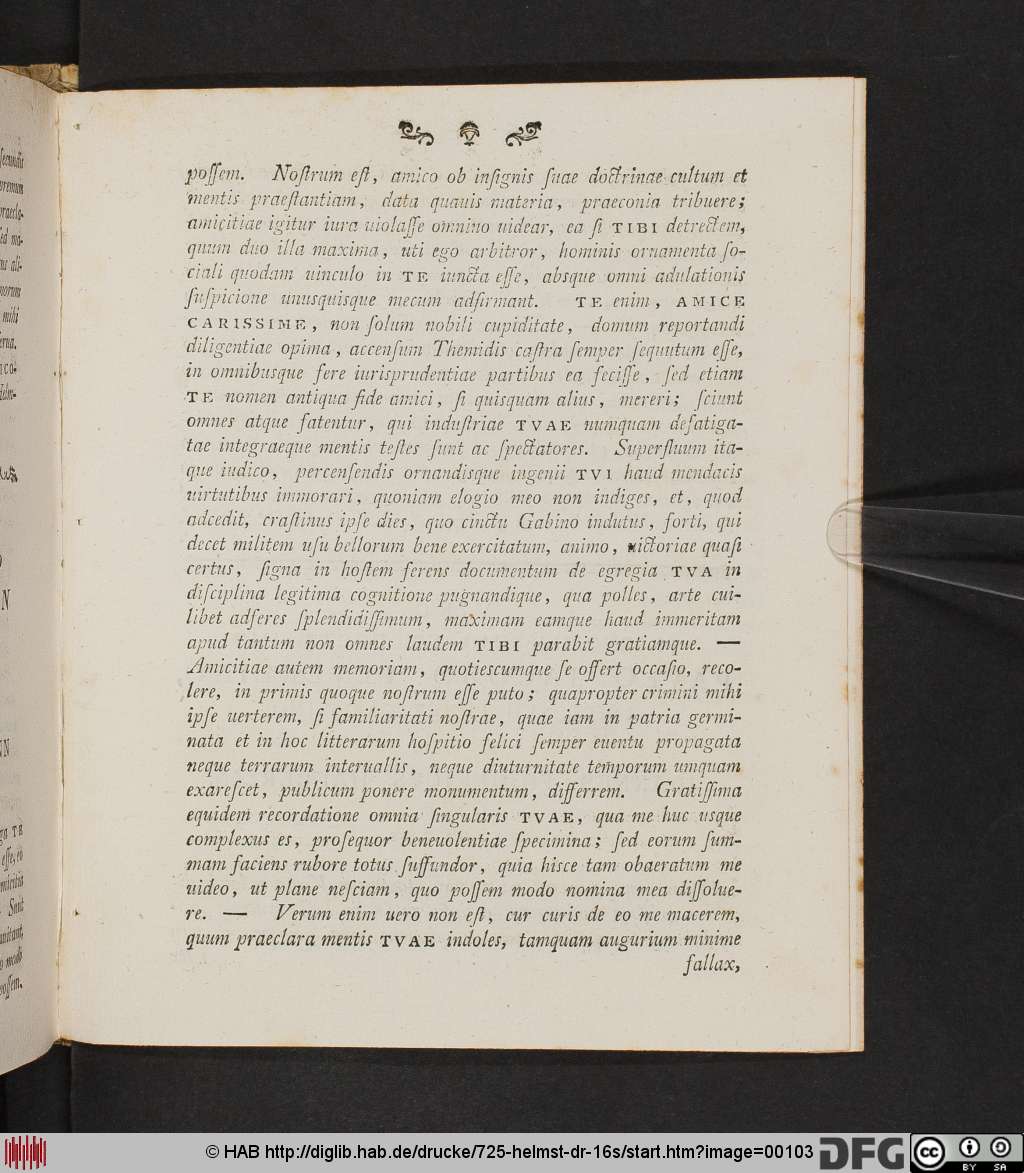 poſſem. Noſtrum eſt, amico ob inſignis ſuae doctrinae cultum et
mentis praeſtantiam, data quauis materia, praeconia tribuere;
amicitiae igitur iura uiolaſſe omnino uidear, ea ſi TIBI detrectem,
quum duo illa maxima, uti ego arbitror, hominis ornamenta ſo-
ciali quodam uinculo in TE iuncta eſſe, absque omni adulationis
ſuſpicione unusquisque mecum adfirmant. TE enim, AMICE
CARISSIME, non ſolum nobili cupiditate, domum reportandi
diligentiae opima, accenſum Themidis caſtra ſemper ſequutum eſſe,
in omnibusque fere iurisprudentiae partibus ea feciſſe, ſed etiam
TE nomen antiqua fide amici, ſi quisquam alius, mereri; ſciunt
omnes atque fatentur, qui induſtriae TVAE numquam defatiga-
tae integraeque mentis teſtes ſunt ac ſpectatores. Superfluum ita-
que iudico, percenſendis ornandisque ingenii TVI haud mendacis
uirtutibus immorari, quoniam elogio meo non indiges, et, quod
adcedit, craſtinus ipſe dies, quo cinctu Gabino indutus, forti, qui
decet militem uſu bellorum bene exercitatum, animo, uictoriae quaſi
certus, ſigna in hoſtem ferens documentum de egregia TVA in
diſciplina legitima cognitione pugnandique, qua polles, arte cui-
libet adferes ſplendidiſſimum, maximam eamque haud immeritam
apud tantum non omnes laudem TIBI parabit gratiamque. —
Amicitiae autem memoriam, quotiescumque ſe offert occaſio, reco-
lere, in primis quoque noſtrum eſſe puto; quapropter crimini mihi
ipſe uerterem, ſi familiaritati noſtrae, quae iam in patria germi-
nata et in hoc litterarum hoſpitio felici ſemper euentu propagata
neque terrarum interuallis, neque diuturnitate temporum umquam
exareſcet, publicum ponere monumentum, differrem. Gratiſſima
equidem recordatione omnia ſingularis TVAE, qua me huc usque
complexus es, proſequor beneuolentiae ſpecimina; ſed eorum ſum-
mam faciens rubore totus ſuffundor, quia hisce tam obaeratum me
uideo, ut plane neſciam, quo poſſem modo nomina mea diſſolue-
re. — Verum enim uero non eſt, cur curis de eo me macerem,
quum praeclara mentis TVAE indoles, tamquam augurium minime
fallax,
© HAB http://diglib.hab.de/drucke/725-helmst-dr-16s/start.htm?image=00103
DFG
cc BY SA